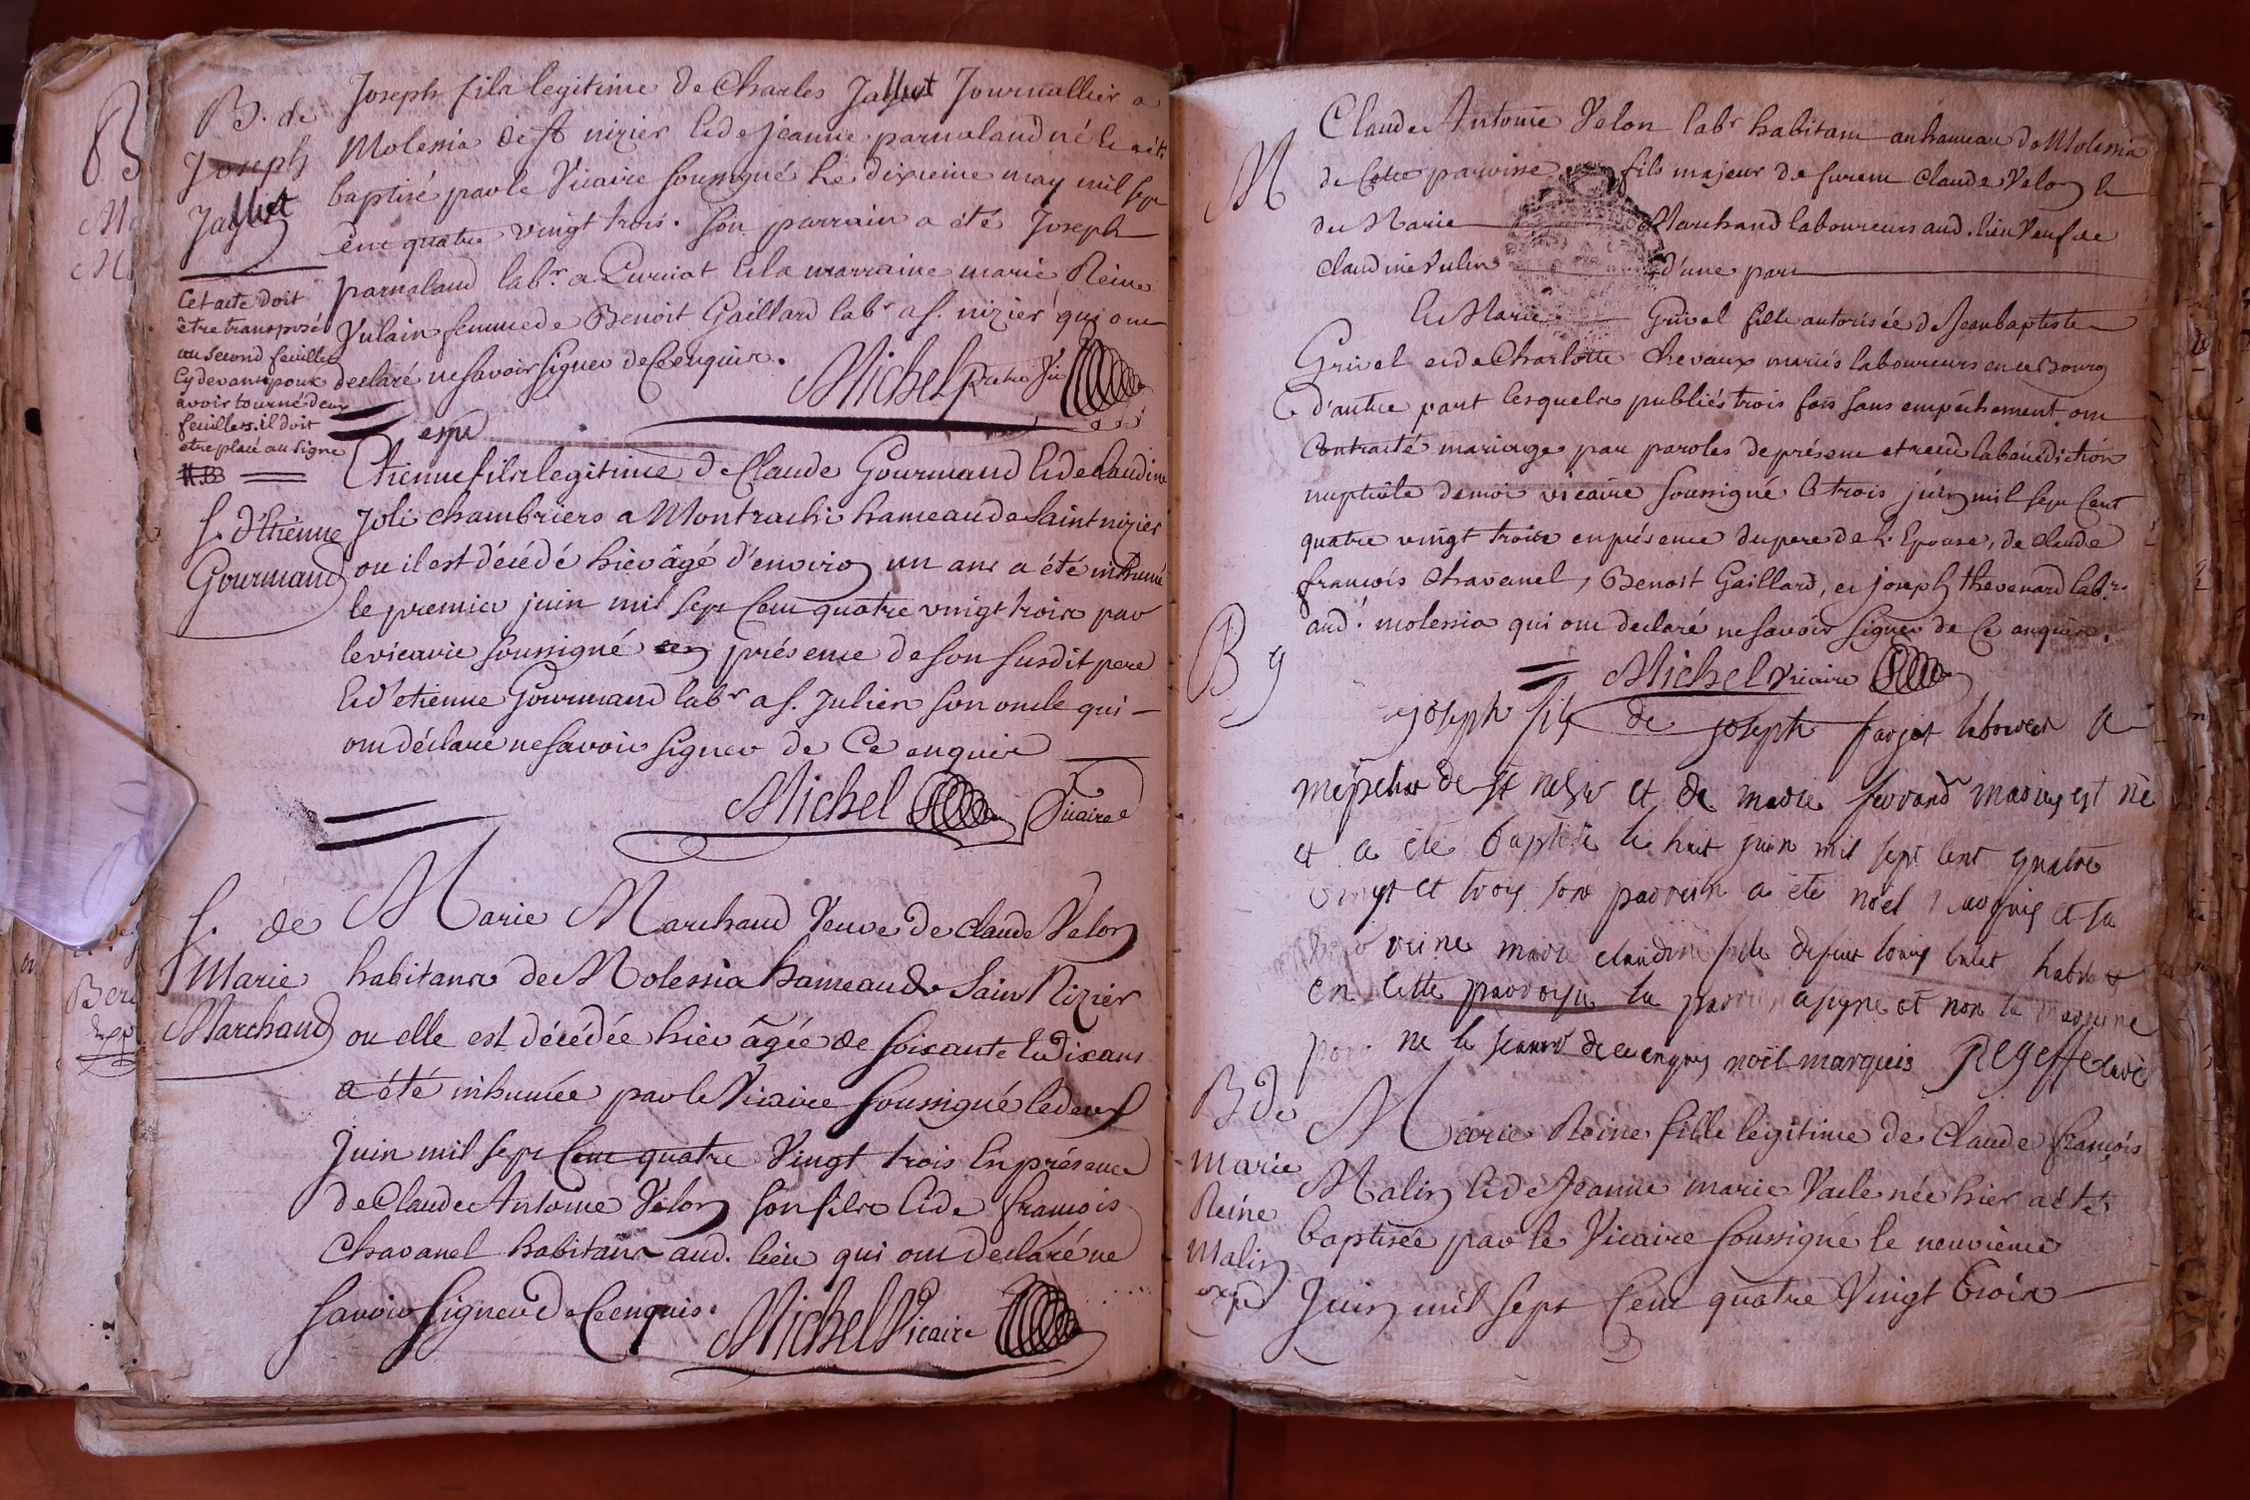 B. de
Joseph
Jalliet
Joseph fils legitime de Charles Jalliet Journallier a
Molessia de st nizier et de jeanne parnaland né le a été
baptisé par le Vicaire soussigné le dixieme may mil sept
cent quatre vingt trois. Son parrain a été Joseph
parnaland labr. a Curciat et la marraine marie Reine
Vulain femme de Benoit Gaillard labr a s. nizier qui ont
declaré ne savoir signer de ce enquis.
Michel pretre vic
Cet acte doit
être transposé
au second feuillet
cy devant pour
avoir tourné deux
feuillets. il doit
etre placé au signe
N.B
expé
S. d'Etienne
Gourmand
Etienne fils legitime de Claude Gourmand et de claudine
Joli chambriers a Montrachi hameau de Saint nizier
ou il est décédé hier âgé d'environ un ans a été inhumé
le premier juin mil sept cent quatre vingt trois par
le vicaire soussigné en présence de son susdit pere
et d'etienne Gourmand labr a s. Julien son oncle qui
ont déclaré ne savoir signer de ce enquis
Michel Vicaire
S. de
Marie
Marchand
Marie Marchand Veuve de claude Velon
habitans de Molessia hameau de Saint Nizier
ou elle est décédée hier âgée de soixante et dix ans
a été inhumée par le Vicaire soussigné le deux
Juin mil sept cent quatre Vingt trois En présence
de Claude Antoine Velon son fils et de francois
Chavanel habitans aud. lieu qui ont declaré ne
savoir signer de ce enquis.
Michel Vicaire
M
Claude Antoine Velon labr habitant au hameau de Molessia
de cette paroisse fils majeur de furent Claude Velon et
de Marie Marchand laboureurs aud. lieu Veuf de
claudine Vulin d'une part
Et Marie Grivel fille autorisée de Jean baptiste
Grivel et de Charlotte Chevaux mariés laboureurs en ce Bourg
d'autre part lesquels publiés trois fois sans empêchement ont
Contracté mariage par paroles de présent et recu la bénédiction
nuptiale de moi vicaire soussigné le trois juin mil sept cent
quatre vingt trois en présence du pere de l'Epouse, de claude
francois Chavanel, Benoit Gaillard, et joseph thevenard labrs.
aud. molessia qui ont declaré ne savoir signer de ce enquis.
Michel Vicaire
B g
joseph fils de joseph farjet laboureur a
de st nesier et de marie ferrand maries est né
et a été baptisé le huit juin mil sept cent quatre
vingt et trois son parrein a été noel marquis et la
marie claudine fille de feut louis
en cette parroisse le parrein a signe et non la marreine
pour ne le scavoir de ce enquis noël marquis Regeffe curé
B de
Marie
Reine
Malin
expé
Marie Reine fille légitime de Claude françois
Malin et de Jeanne marie Vaile née hier a été
baptisée par le Vicaire soussigné le neuvieme
Juin mil sept cent quatre Vingt trois